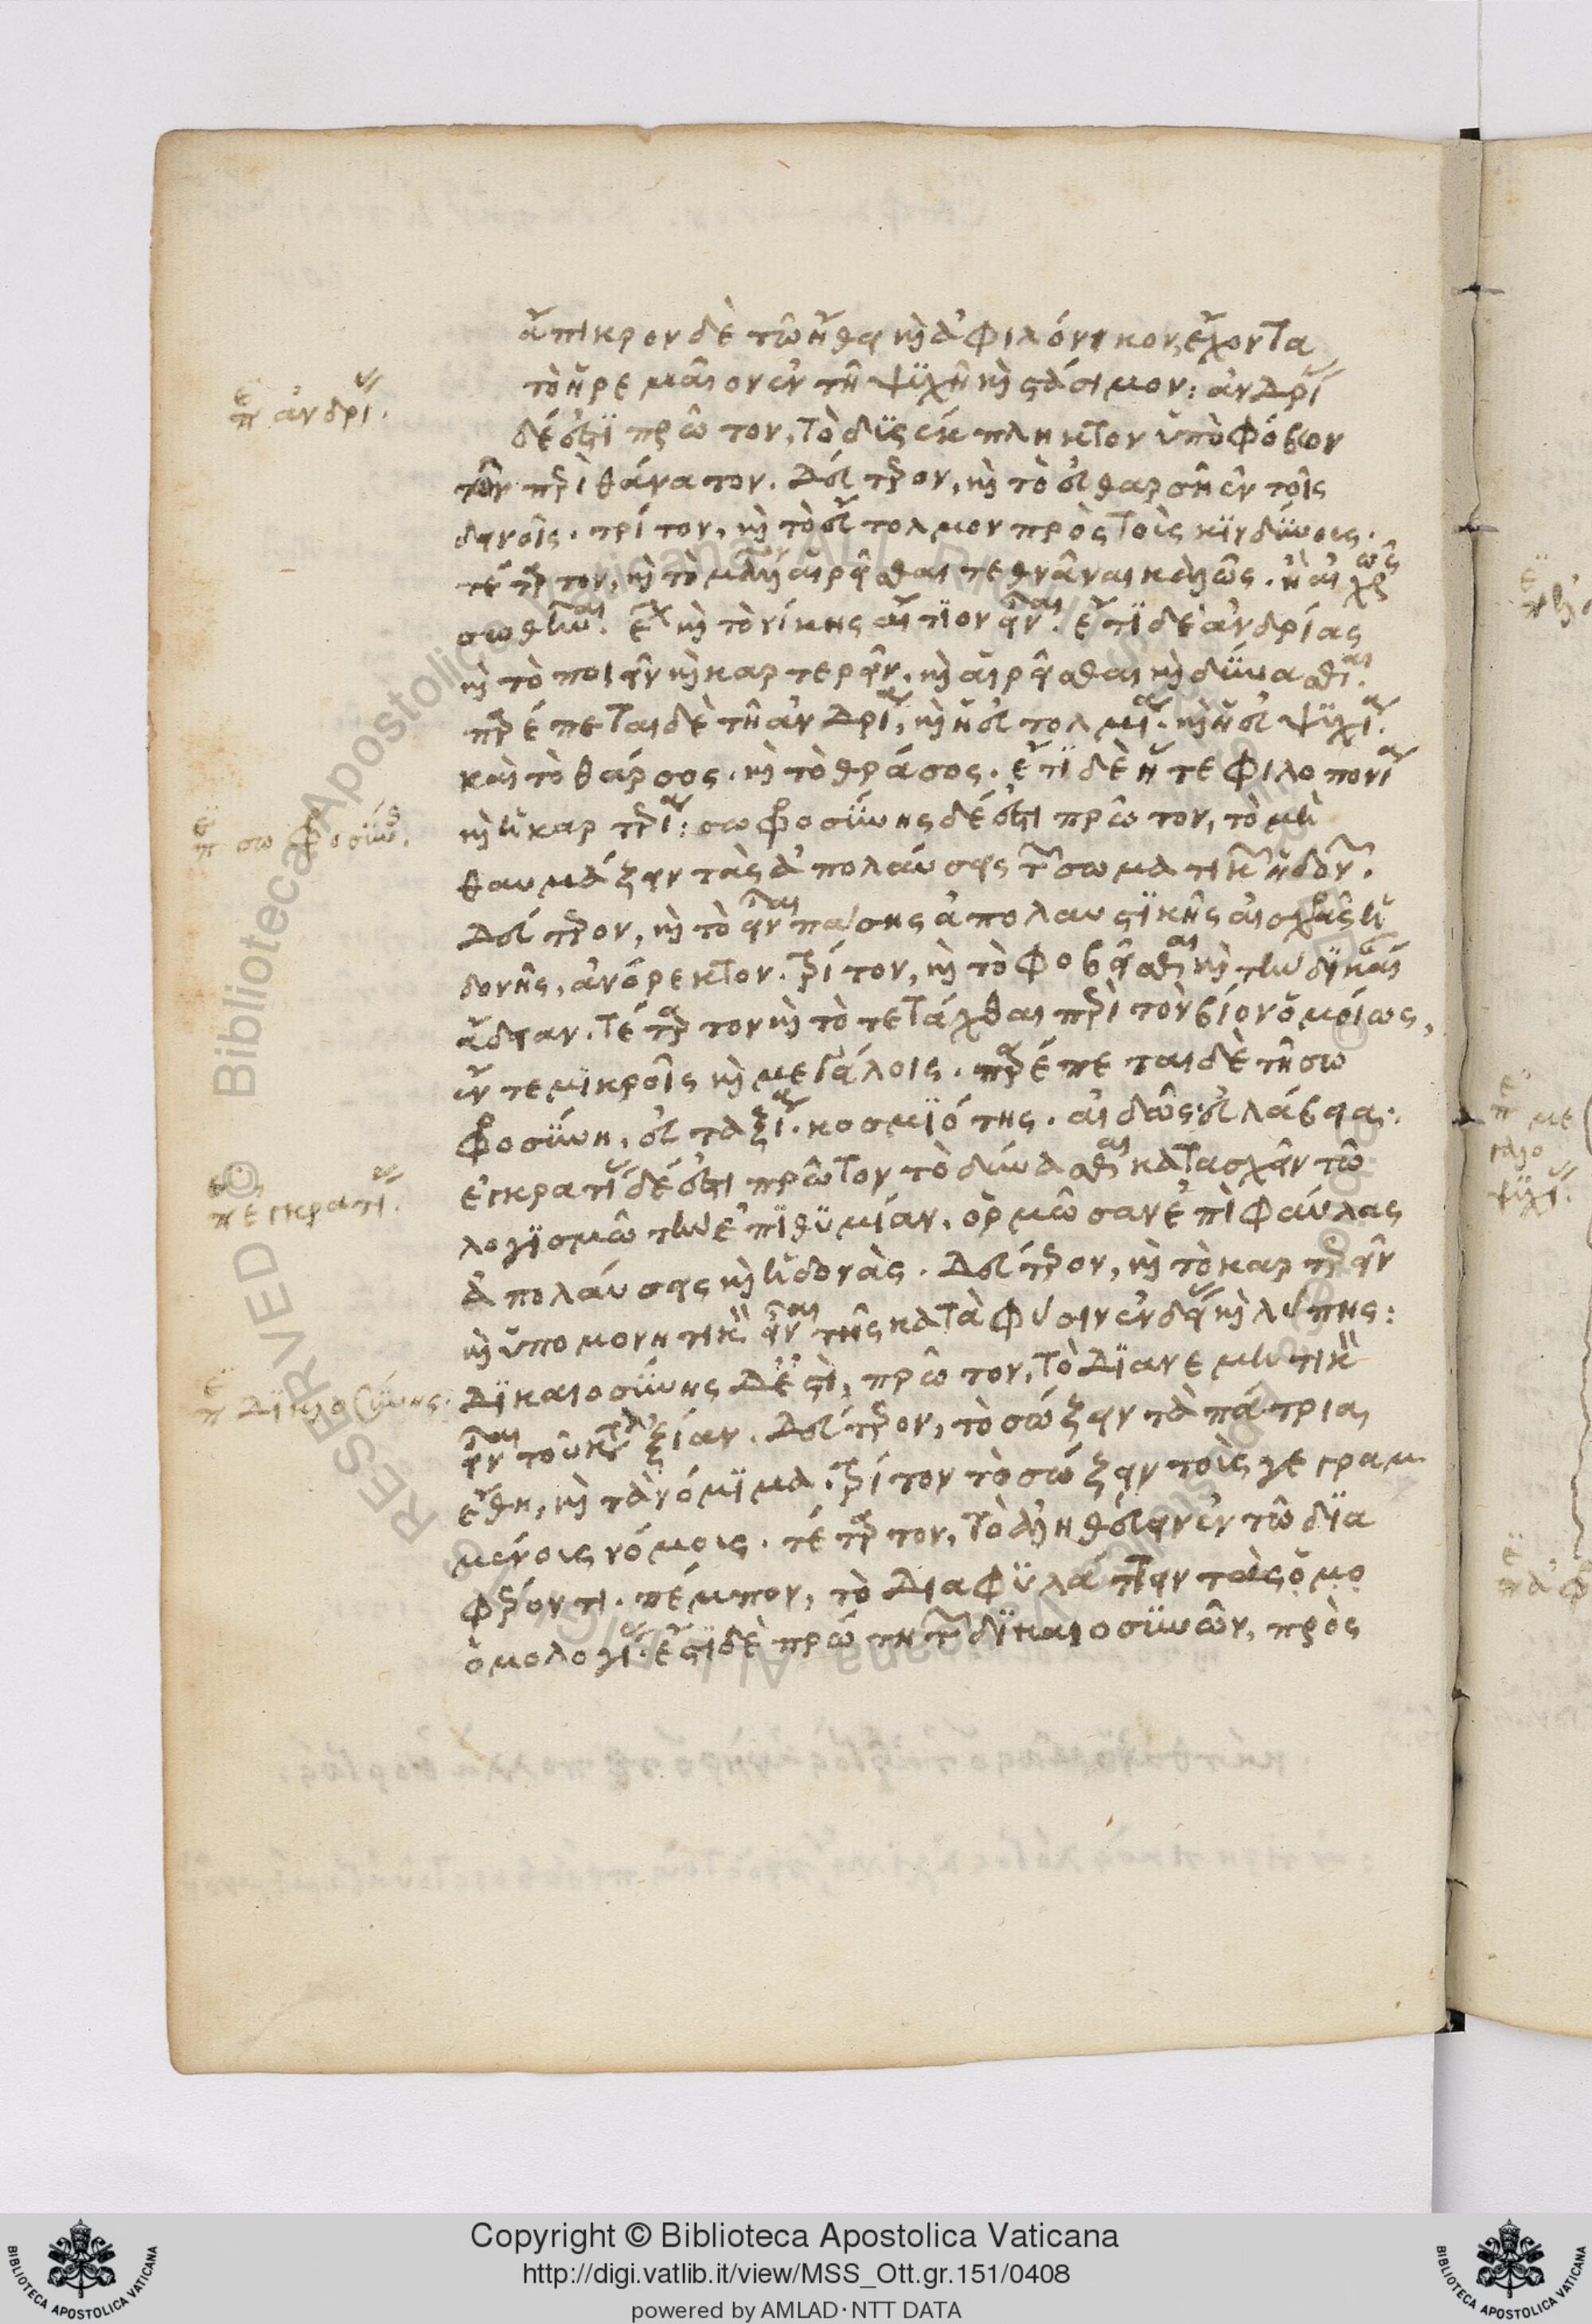 ἄπικρον δὲ τῷ ἤθει καὶ ἀφιλόνικον, ἔχοντα
τὸ ἠρεμαῖον ἐν τῇ ψυχῇ καὶ στάσιμον: ἀνδρίας
π ἀνδρίας.
δέ ἐστι πρῶτον, τὸ δυσέκπληκτον ὑπὸ φόβων
τῶν περὶ θάνατον. δεύτερον, καὶ τὸ εὐθαρσῆ ἐν τοῖς
δεινοῖς. τρίτον, καὶ τὸ εὔτολμον πρὸς τοῖς κινδύνοις.
τέταρτον, καὶ τὸ μᾶλλον αἱρεῖσθαι τεθνάναι καλῶς. ἢ αἰσχρῶς
σωθῆναι. ἔτι καὶ τὸ νίκης αἴτιον εἶναι. ἔτι δὲ ἀνδρίας
καὶ τὸ ποιεῖν καὶ καρτερεῖν, καὶ αἱρεῖσθαι καὶ δύνασθαι.
παρέπεται δὲ τῇ ἀνδρίᾳ, καὶ ἡ εὐτολμία. καὶ ἡ εὐψυχία.
καὶ τὸ θάρσος. καὶ τὸ θράσος. ἔτι δὲ ἥ τε φιλοπονία
καὶ ἡ καρτερία: σωφροσύνης δέ ἐστι πρῶτον, τὸ μὴ
π σωφροσύνης.
θαυμάζειν τὰς ἀπολαύσεις τῶν σωματικῶν ἡδονῶν.
δεύτερον, καὶ τὸ εἶναι πάσης ἀπολαυστικῆς αἰσχρᾶς ἡ
δονῆς, ἀνόρεκτον. τρίτον, καὶ τὸ φοβεῖσθαι καὶ τὴν δικαίαν
ἄδειαν. τέταρτον καὶ τὸ τετάχθαι περὶ τὸν βίον ὁμοίως,
ἔν τε μικροῖς καὶ μεγάλοις. παρέπεται δὲ τῇ σω
φροσύνῃ, εὐταξία. κοσμιότης. αἰδώς. εὐλάβεια:
π ἐγκρατείας.
ἐγκρατείας δέ ἐστι πρῶτον τὸ δύνασθαι κατασχεῖν τῷ
λογισμῷ τὴν ἐπιθυμίαν, ὁρμῶσαν ἐπὶ φαύλας
ἀπολαύσεις καὶ ἡδονάς. δεύτερον, καὶ τὸ καρτερεῖν
καὶ ὑπομονητικὸν εἶναι τῆς κατὰ φύσιν ἐνδείας καὶ λύπης:
π δικαιοσύνης.
δικαιοσύνης δέ ἐστι, πρῶτον, τὸ διανεμητικὸν
εἶναι τοῦ κατ' ἀξίαν. δεύτερον, τὸ σώζειν τὰ πάτρια
ἔθη, καὶ τὰ νόμιμα. τρίτον τὸ σώζειν τοῖς γεγραμ
μένοις νόμοις. τέταρτον, τὸ ἀληθεύειν ἐν τῷ δια
φέροντι. πέμπον, τὸ διαφυλάττειν τὰς ὁμο
ὁμολογίας. ἔστι δὲ πρώτη τῶν δικαιοσυνῶν, πρὸς
Copyright © Biblioteca Apostolica Vaticana
http://digi.vatlib.it/view/MSS_Ott.gr.151/0408
powered by AMLAD·NTT DATA